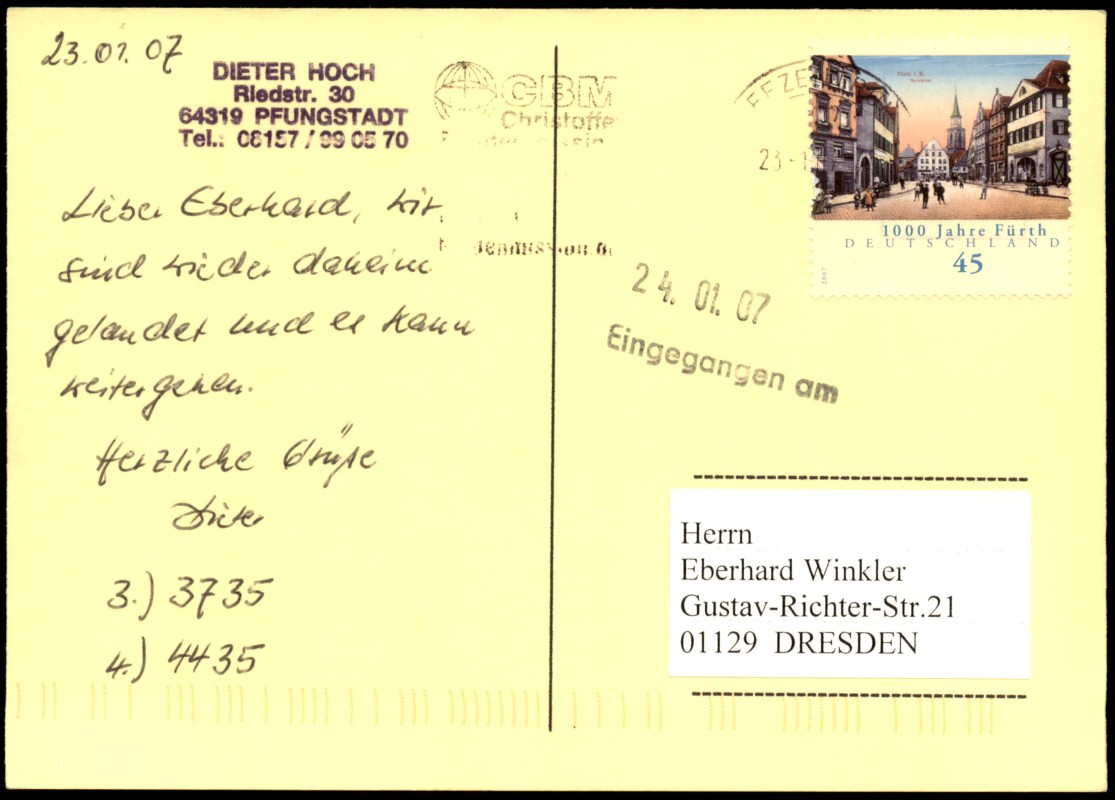 23.01.07
DIETER HOCH
Riedstr. 30
64319 PFUNGSTADT
Tel.: 06157 / 99 05 70
CBM
Christoffe
Lieber Eberhard, wir
sind wieder daheim
gelandet und es kann
weitergehen.
Herzliche Grüße
Dieter
3.) 3735
4.) 4435
23-1
Fürth i. B.
1000 Jahre Fürth
DEUTSCHLAND
45
2007
24. 01. 07
Eingegangen am
Herrn
Eberhard Winkler
Gustav-Richter-Str.21
01129 DRESDEN